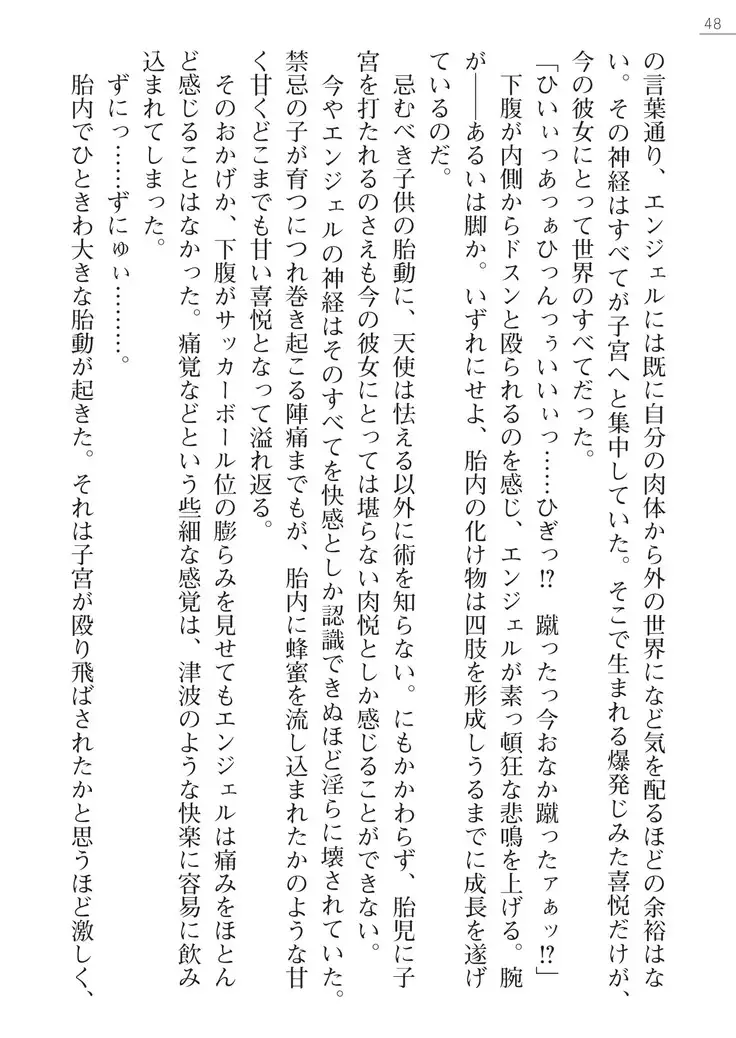 48
の言葉通り、エンジェルには既に自分の肉体から外の世界になど気を配るほどの余裕はな
い。その神経はすべてが子宮へと集中していた。そこで生まれる爆発じみた喜悦だけが、
今の彼女にとって世界のすべてだった。
「ひいぃっあっぁひっんっぅいいぃっ……ひぎっ!?　蹴ったっ今おなか蹴ったァぁッ!?」
下腹が内側からドスンと殴られるのを感じ、エンジェルが素っ頓狂な悲鳴を上げる。腕
が――あるいは脚か。いずれにせよ、胎内の化け物は四肢を形成しうるまでに成長を遂げ
ているのだ。
忌むべき子供の胎動に、天使は怯える以外に術を知らない。にもかかわらず、胎児に子
宮を打たれるのさえも今の彼女にとっては堪らない肉悦としか感じることができない。
今やエンジェルの神経はそのすべてを快感としか認識できぬほど淫らに壊されていた。
禁忌の子が育つにつれ巻き起こる陣痛までもが、胎内に蜂蜜を流し込まれたかのような甘
く甘くどこまでも甘い喜悦となって溢れ返る。
そのおかげか、下腹がサッカーボール位の膨らみを見せてもエンジェルは痛みをほとん
ど感じることはなかった。痛覚などという些細な感覚は、津波のような快楽に容易に飲み
込まれてしまった。
ずにっ……ずにゅぃ………。
胎内でひときわ大きな胎動が起きた。それは子宮が殴り飛ばされたかと思うほど激しく、